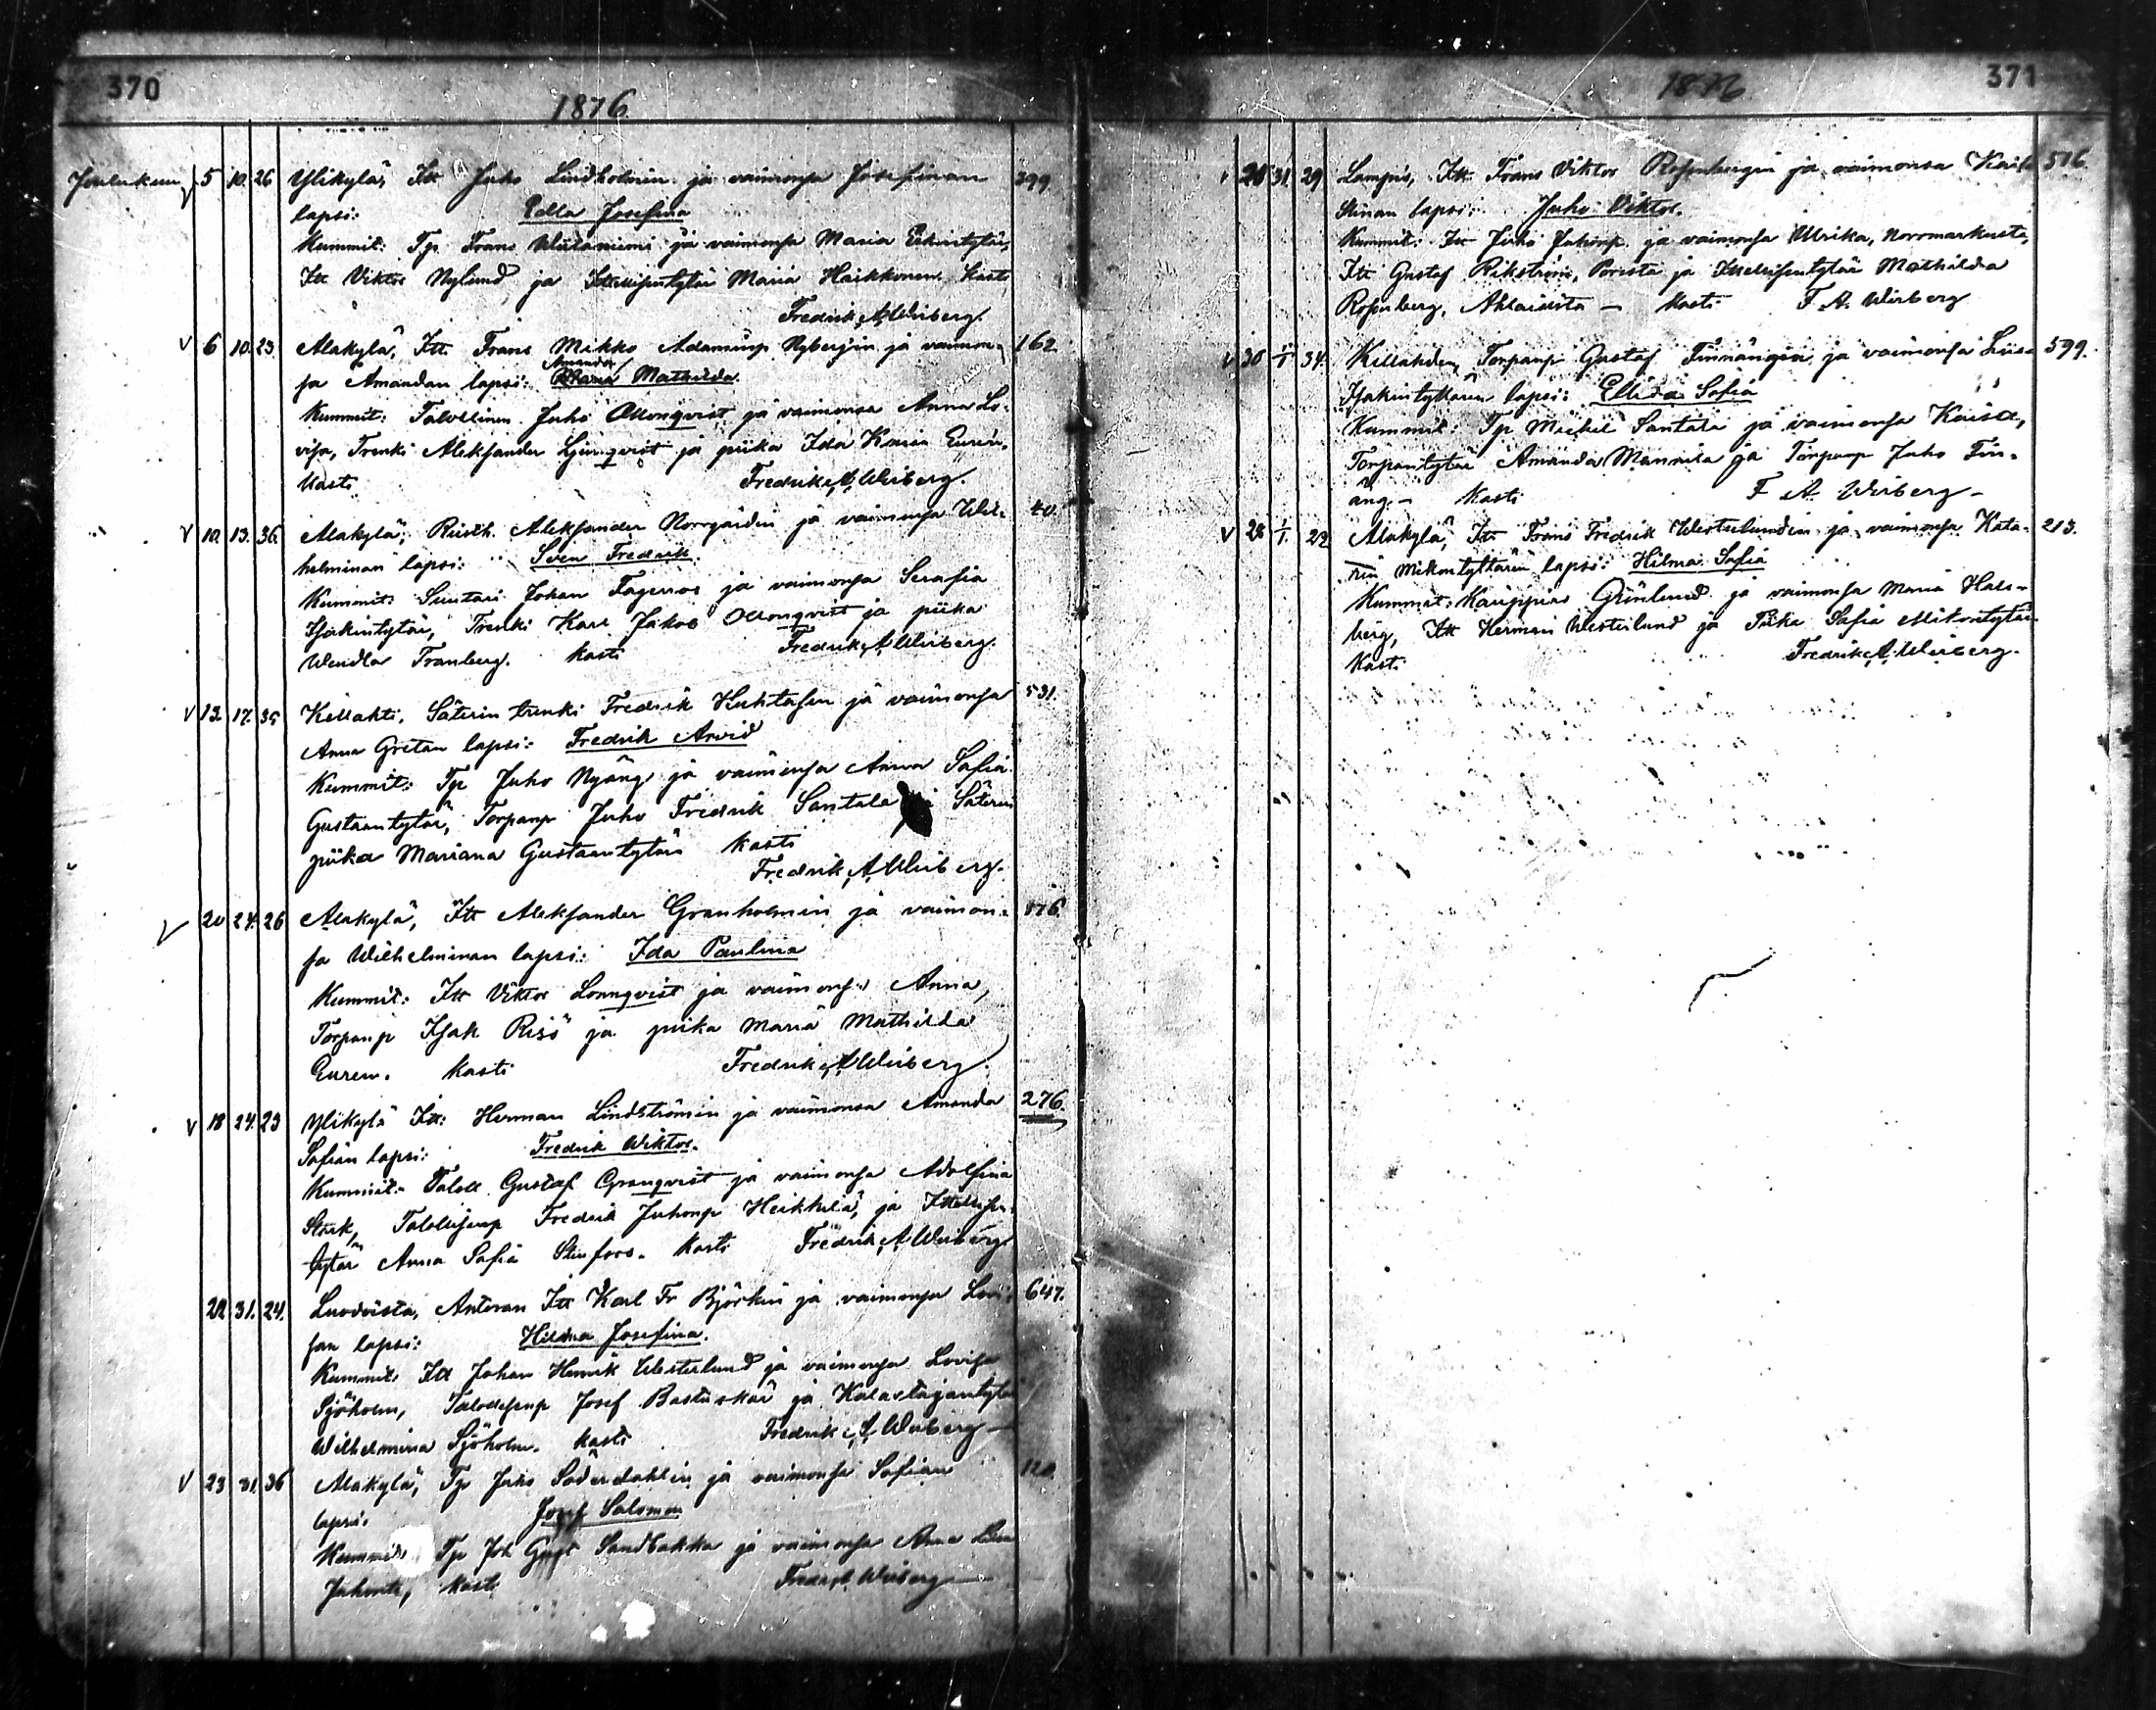 370
1876
Joulukuu 5 10. 26 Ylikylä, Itt Juho Lindholmin ja vaimonsa Josefinan 399
lapsi: Edla Josefina
Kummit: Tp. Frans ja vaimonsa Maria Erkintytär,
Itt Viktor Nylund ja Itsellisentytär Maria Heikkonen. Kasti
Fredrik A Wirberg.
V 6 10. 23. Alakylä, Itt. Frans Mikko Adaminp Nybergin ja vaimon- 162
sa Amandan lapsi: Amanda Mathilda.
Kummit: Talollinen Juho Ollonqvist ja vaimonsa Anna Lo-
visa, Trenki Aleksander Ljungqvist ja piika Ida Eurén,
Kasti Fredrik A Wirberg.
V 10. 13. 36. Alakylä, Rusth. Aleksander Norrgårdin ja vaimonsa Wil- 40.
helminan lapsi: Sven Fredrik
Kummit: Suutari Johan Fagerroos ja vaimonsa Serafia
Isakintytär, Trenki Karl Jakob Ollonqvist ja piika
Wendla Tranberg. Kasti Fredrik A Wirberg.
V 13. 17. 35 Killahti, Säterin trenki Fredrik Huhtasen ja vaimonsa 531.
Anna Gretan lapsi: Fredrik Arvid
Kummit: Tp Juho Nyäng ja vaimonsa Anna Safia
Gustaantytär, Torpanp Juho Fredrik Santala Säterin
piika Mariana Gustaantytär Kasti
Fredrik A Wirberg.
V 20 24. 26 Alakylä, Itt Aleksander Granholmin ja vaimon- 176.
sa Wilhelminan lapsi: Ida Paulina
Kummit: Itt Viktor Lönnqvist ja vaimonsa Anna,
Torpanp Isak Risö ja piika Maria Mathilda
Euren. Kasti Fredrik A Wirberg.
V 18 24. 23 Ylikylä Itt: Herman Lindströmin ja vaimonsa Amanda 276.
Safian lapsi: Fredrik Wiktor.
Kummit: Taloll. Gustaf Granqvist ja vaimonsa Adolfina
Stark, Talollisenp Fredrik Juhonp Heikkilä, ja Itsellisen-
tytär Anna Safia Stenfors. Kasti Fredrik A Wirberg
22. 31. 24. Luodoista, Anteran Itt Karl Fr Björkin ja vaimonsa Lovi- 647.
san lapsi: Hilma Josefina.
Kummit: Itt Johan Henrik Westerlund ja vaimonsa Lovisa
Sjöholm, Talollisenp Josef Bastuskär ja Kalastajantytär
Wilhelmina Sjöholm. Kasti Fredrik A Wirberg
V 23 31. 36 Alakylä, Tp Juho Söderdahlin ja vaimonsa Safian 120
lapsi. Josef Salomon
Kummit: Tp Joh Gust Sandbakka ja vaimonsa Anna Lisa
Juhont, Kasti Fredr. A Wirberg
1876 371
V 28 31. 29 Lampis, Itt. Frans Viktor Rosenbergin ja vaimonsa Kaisa 516
Stinan lapsi: Juho Viktor.
Kummit: Itt Juho Juhonp. ja vaimonsa Ulrika, Norrmarkusta,
Itt Gustaf Rikström, Porista ja Itsellisentytär Mathilda
Rosenberg, Ahlaisista — Kasti F. A. Wirberg
V 30 1/1 34. Killahden, Torpanp Gustaf Finnängin ja vaimonsa Liisa 599.
Isakintyttären lapsi: Ellida Sofia
Kummit: Tp Mickel Santala ja vaimonsa Kaisa,
Torpantytär Amanda Mannila ja Torpanp Juho Fin-
äng — Kasti F A Wirberg —
V 28 1/1 22 Alakylä, Itt Frans Fredrik Westerlundin ja vaimonsa Kata- 213.
rin Mikontyttären lapsi: Hilma Sofia
Kummit: Kauppias Grönlund ja vaimonsa Maria Hals-
berg, Itt Herman Westerlund ja Piika Safia Mikontytär
Kasti Fredrik A Wirberg.